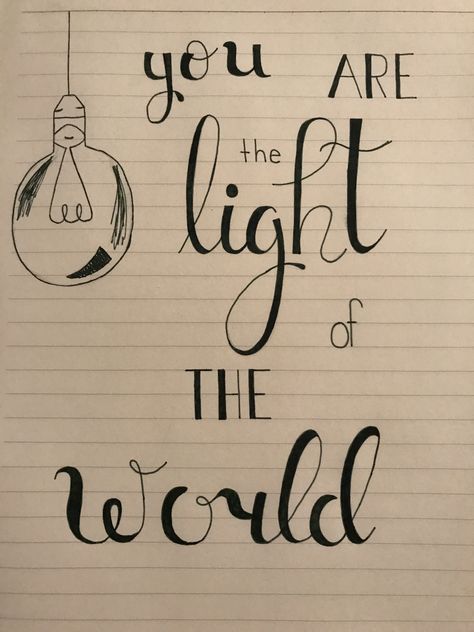 you ARE
the
light
of
THE
World